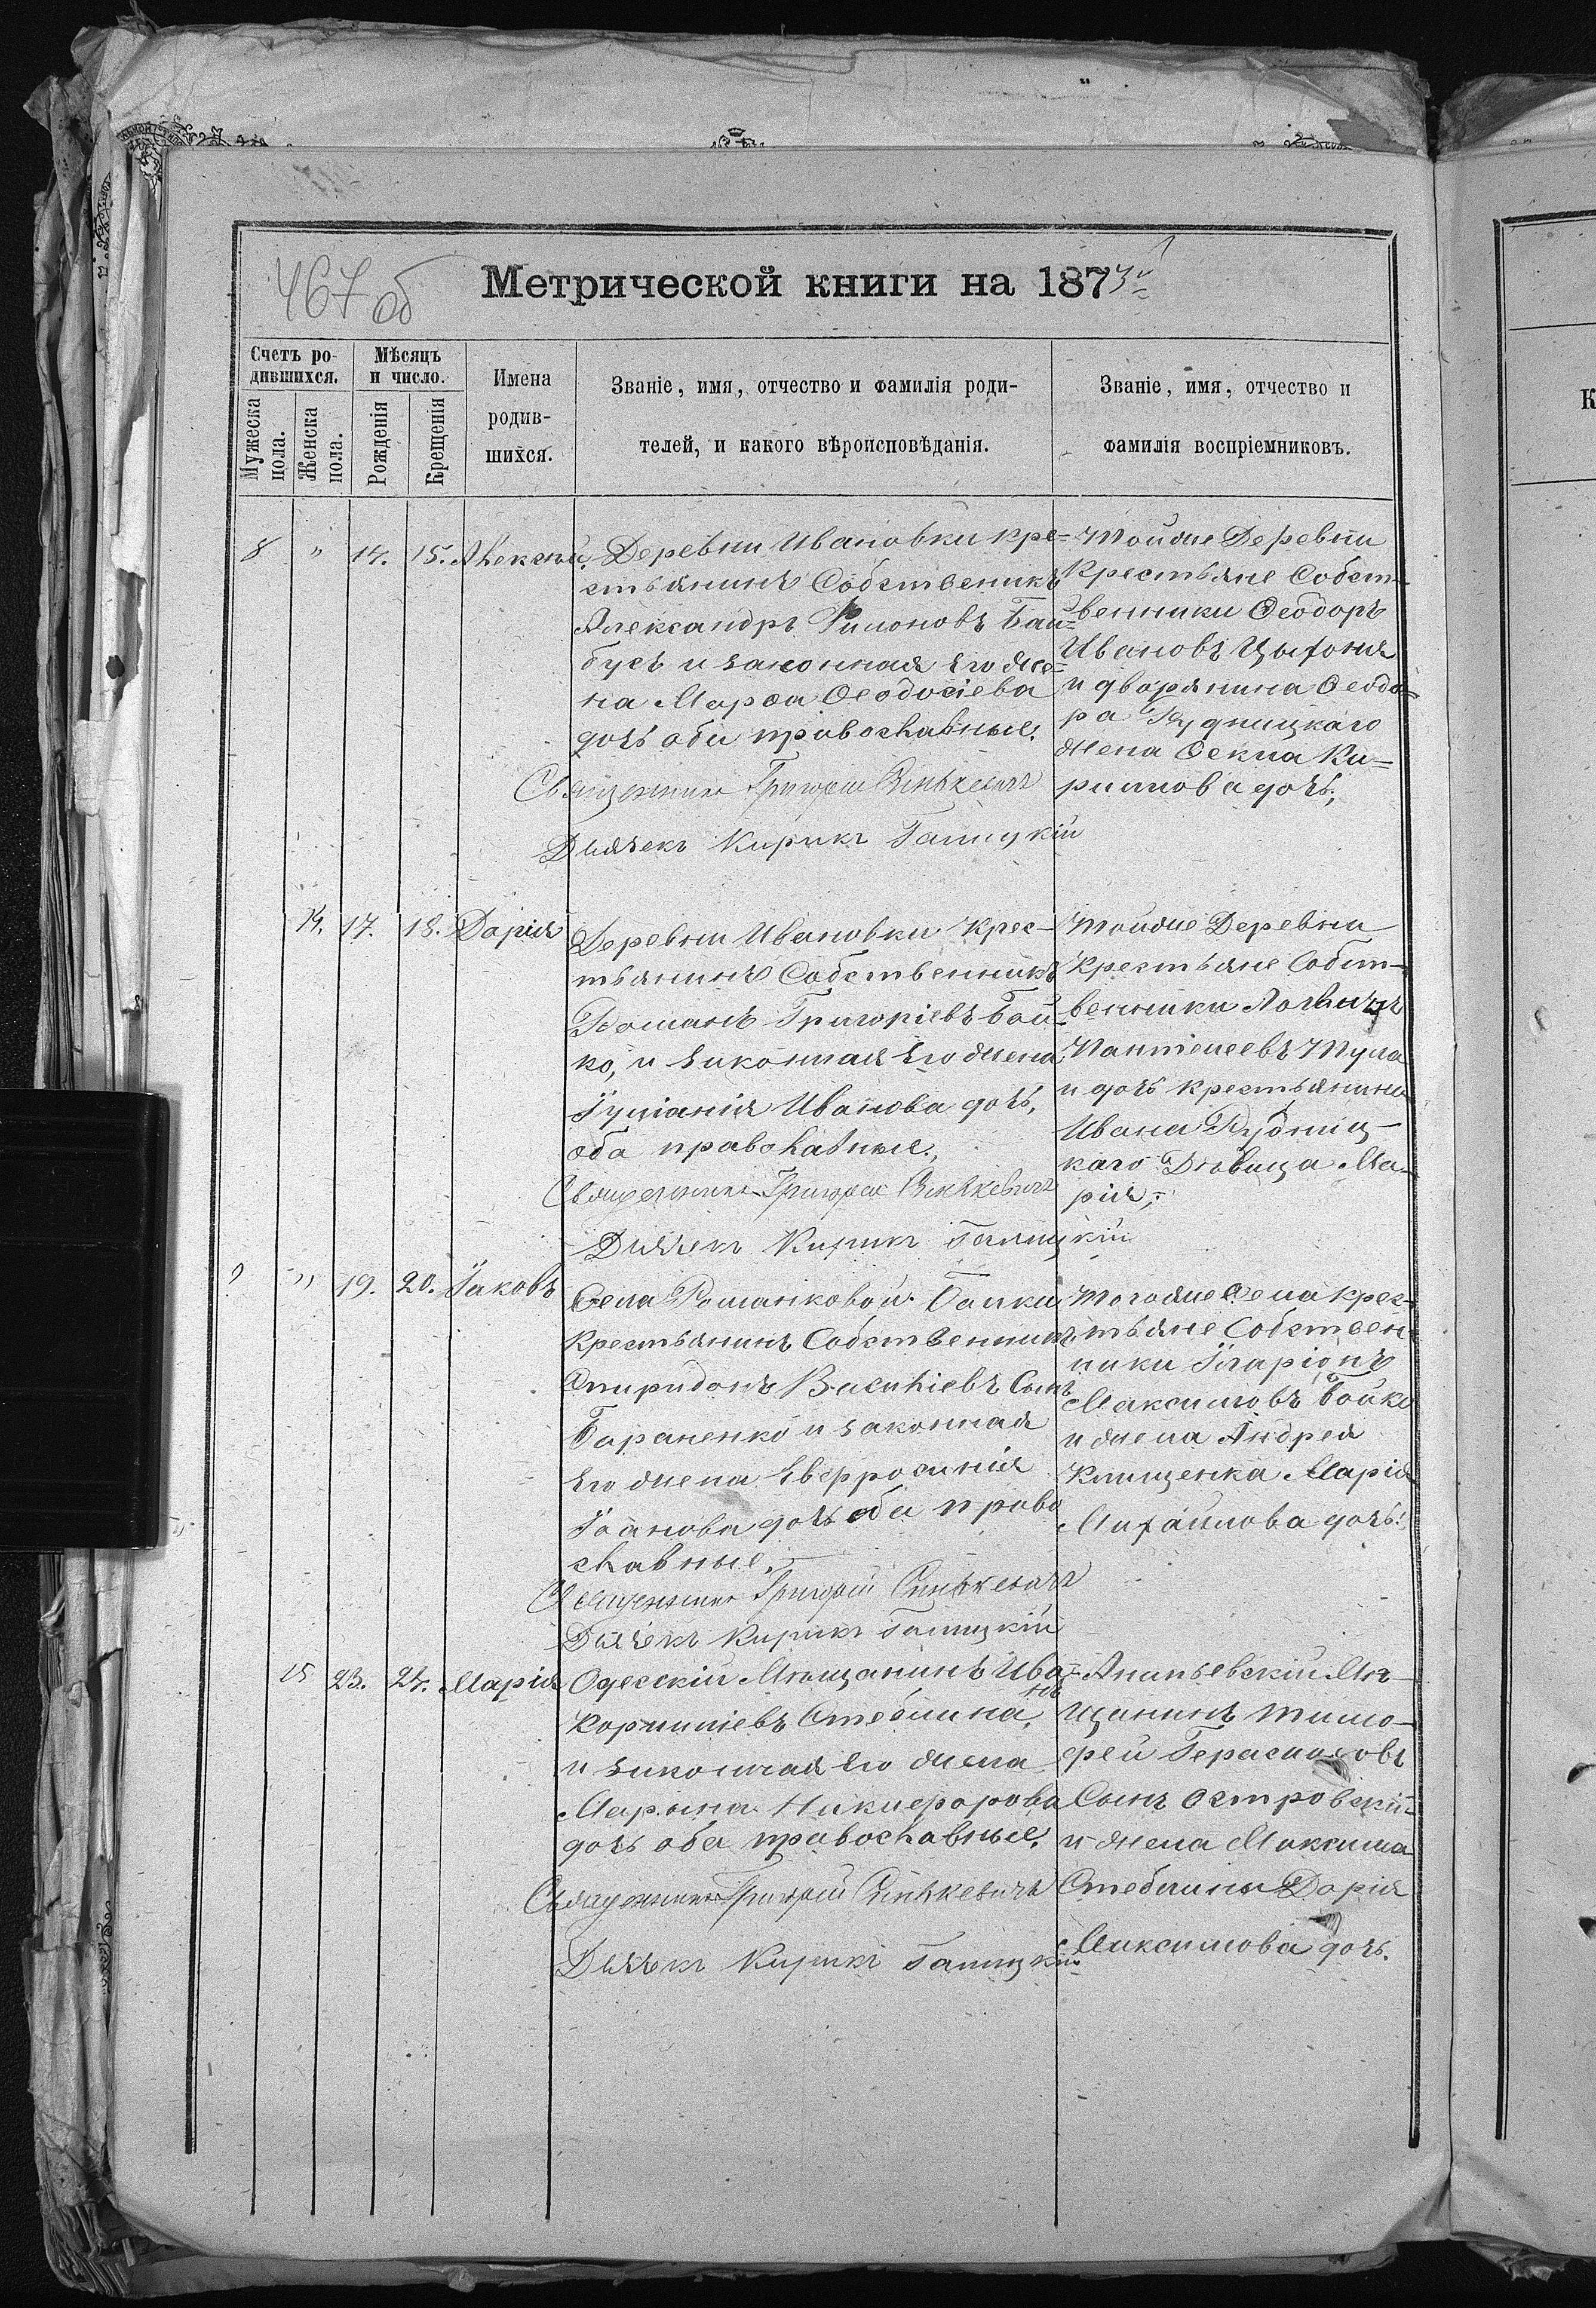 467 об
Метрической книги на 1873й
Счетъ ро-
дившихся.
Мѣсяцъ
и число.
Мужеска
пола.
Женска
пола.
Рожденія
Крещенія
Имена
родив-
шихся.
Званіе, имя, отчество и фамилія роди-
телей, и какого вѣроисповѣданія.
Званіе, имя, отчество и
фамилія воспріемниковъ.
8 " 14. 15. Алексѣй.
Деревни Ивановки кре-
стьянинъ Собственикъ
Александръ Филоновъ Бай-
бусъ и законная его же-
на Марѳа Ѳеодосіева
дочь оба православные.
Священникъ Григорій Синькевичъ
Дьячекъ Кирикъ Галицкій
Тойже Деревни
Крестьяне Собст-
венники Ѳеодоръ
Ивановъ
и дворянина Ѳеодо-
ра Рудницкаго
жена Ѳекла Ки-
рилова дочь,
14. 17. 18. Дарія
Деревни Ивановки Крес-
тьянинъ Собственникъ
Романъ Григоріевъ Бой-
ко, и законная его жена
Іуліанія Иванова дочь,
оба православные.,
Священникъ Григорій Синькевичъ
Дьячекъ Кирикъ Галицкій
Тойже Деревни
Крестьяне Собст-
венники Логвинъ
Пантелеевъ
и дочь крестьянина
Ивана Рудниц-
каго Дѣвица Ма-
рія,
9 " 19. 20. Іаковъ
Села Романковой Балки
Крестьянинъ Собственникъ
Спиридонъ Василіевъ Сынъ
Бараненко и законная
его жена Евфросинія
Іоанова дочь оба право
славные.
Священникъ Григорій Синькевичъ
Дьячекъ Кирикъ Галицкій
Тогоже Села Крес-
тьяне Собствен-
ники Иларіонъ
Максимовъ Бойко
и жена Андрея
Клищенка Марія
Михайлова дочь.
15 23. 24. Марія
Одесскій Мѣщанинъ Иванъ
Корниліевъ Стеблина,
и законная его жена
Марѳина Никифорова
дочь оба православные.
Священникъ Григорій Синькевичъ
Дьячекъ Кирикъ Галицкій
Ананьевскій Мѣ-
щанинъ Тимо-
фей Герасимовъ
Сынъ Островскій
и жена Максима
Стеблины Дарія
Максимова дочь.